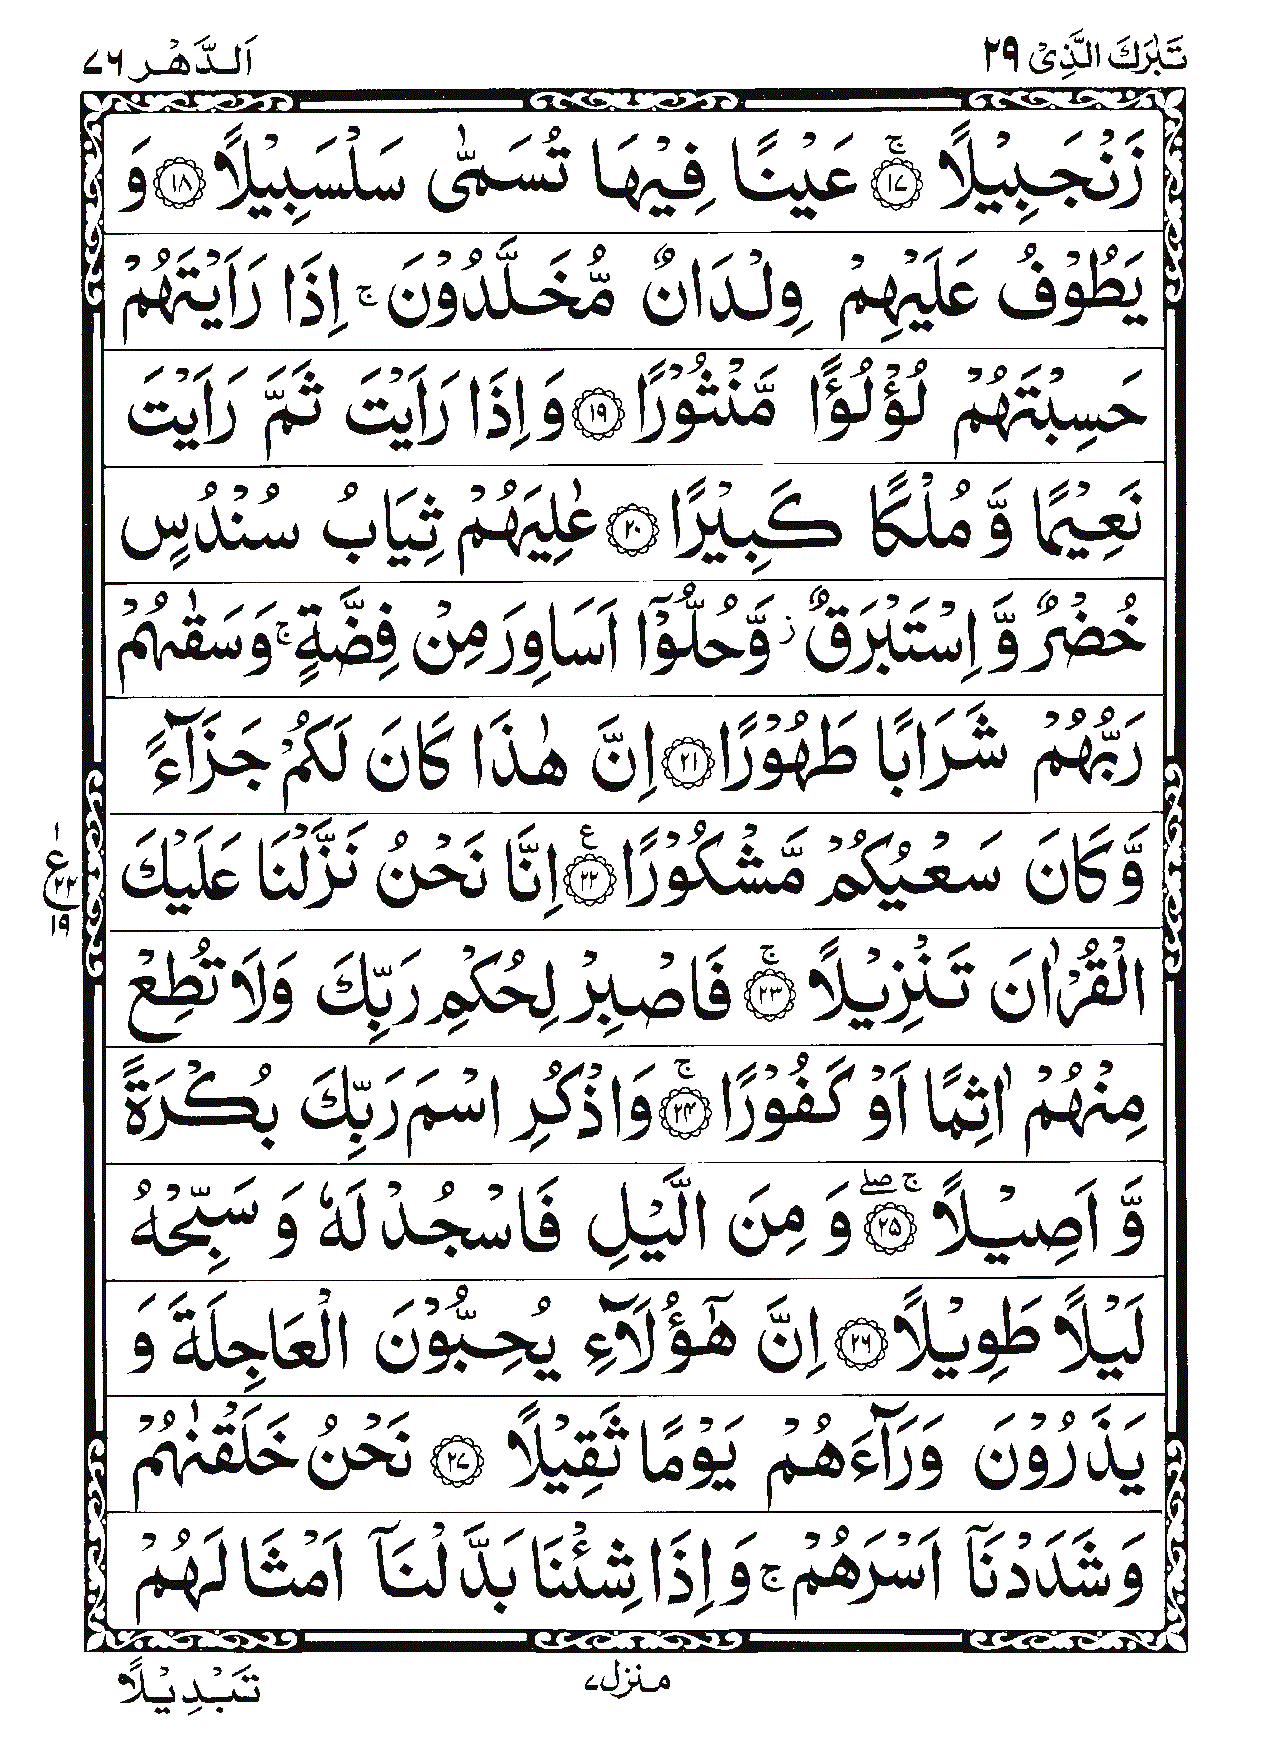 تَبٰرَكَ الَّذِیْ ۲۹
اَلدَّهْر ۷۶
زَنْجَبِیْلًا ۚ‏﴿۱۷﴾ عَیْنًا فِیْهَا تُسَمّٰی سَلْسَبِیْلًا ﴿۱۸﴾ وَ
یَطُوْفُ عَلَیْهِمْ وِلْدَانٌ مُّخَلَّدُوْنَ ۚ اِذَا رَاَیْتَهُمْ
حَسِبْتَهُمْ لُؤْلُؤًا مَّنْثُوْرًا ﴿۱۹﴾ وَ اِذَا رَاَیْتَ ثَمَّ رَاَیْتَ
نَعِیْمًا وَّ مُلْكًا كَبِیْرًا ﴿۲۰﴾ عٰلِیَهُمْ ثِیَابُ سُنْدُسٍ
خُضْرٌ وَّ اِسْتَبْرَقٌ ز وَّحُلُّوْۤا اَسَاوِرَ مِنْ فِضَّةٍ ۚ وَسَقٰىهُمْ
رَبُّهُمْ شَرَابًا طَهُوْرًا ﴿۲۱﴾ اِنَّ هٰذَا كَانَ لَكُمْ جَزَآءً
وَّ كَانَ سَعْیُكُمْ مَّشْكُوْرًا ع ﴿۲۲﴾ اِنَّا نَحْنُ نَزَّلْنَا عَلَیْكَ
۱
ع ۲۲
۱۹
الْقُرْاٰنَ تَنْزِیْلًا ۚ‏﴿۲۳﴾ فَاصْبِرْ لِحُكْمِ رَبِّكَ وَلَا تُطِعْ
مِنْهُمْ اٰثِمًا اَوْ كَفُوْرًا ۚ‏﴿۲۴﴾ وَاذْكُرِ اسْمَ رَبِّكَ بُكْرَةً
وَّ اَصِیْلًا ۚۖ‏﴿۲۵﴾ وَ مِنَ الَّیْلِ فَاسْجُدْ لَهٗ وَ سَبِّحْهُ
لَیْلًا طَوِیْلًا ﴿۲۶﴾ اِنَّ هٰۤؤُلَآءِ یُحِبُّوْنَ الْعَاجِلَةَ وَ
یَذَرُوْنَ وَرَآءَهُمْ یَوْمًا ثَقِیْلًا ﴿۲۷﴾ نَحْنُ خَلَقْنٰهُمْ
وَشَدَدْنَاۤ اَسْرَهُمْ ۚ وَاِذَا شِئْنَا بَدَّلْنَاۤ اَمْثَالَهُمْ
منزل ۷
تَبْدِیْلًا